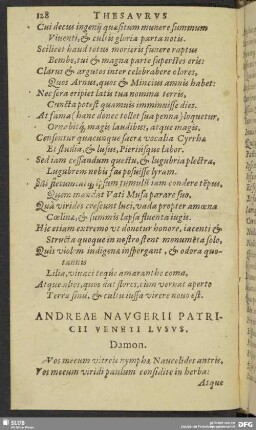 128 THESAVRVS
Cui decus ingenij quæsitum munere summum
Viuenti, & cultis gloria parta notis.
Scilicet haud totus morieris funere raptus
Bembo, tui & magna parte superstes eris:
Clarus & argutos inter celebrabere olores,
Quos Arnus, quos & Mincius amnis habet:
Nec fera eripiet latis tua nomina terris,
Cuncta potest quamuis imminuisse dies.
At fama hanc donec tollet sua penna, loquetur,
magis laudibus, atque magis.
Consurgit quacunque sacra vocalis Cyrrha
Et studia, & lusus, Pieriusque labor.
Sed iam cessandum questu, & lugubria plectra,
Lugubrem nobis fas posuisse lyram.
ipsum tumuli iam condere tẽpus,
Quem mandat Vati Musa parare suo,
Quà virides crescunt luci, vada propter amœna
Cœlina, & summis lapsa fluenta iugis.
Hic etiam extremo vt donetur honore, iacenti &
Structa quoque in nostro stent monumẽta solo,
Quis violam indigena inspergant, & odora quo-
tannis
Lilia, viuaci tequè amaranthe coma,
Atque alios, quos dat flores, cùm vernat aperto
Terra sinu, & cultu iussa virere nouo est.
ANDREAE NAVGERII PATRI-
CII VENETI LVSVS.
Damon.
Vos mecum vitreis nymphæ Naucelides antris,
Vos mecum viridi paulum considite in herba:
Atque
SLUB
DFG